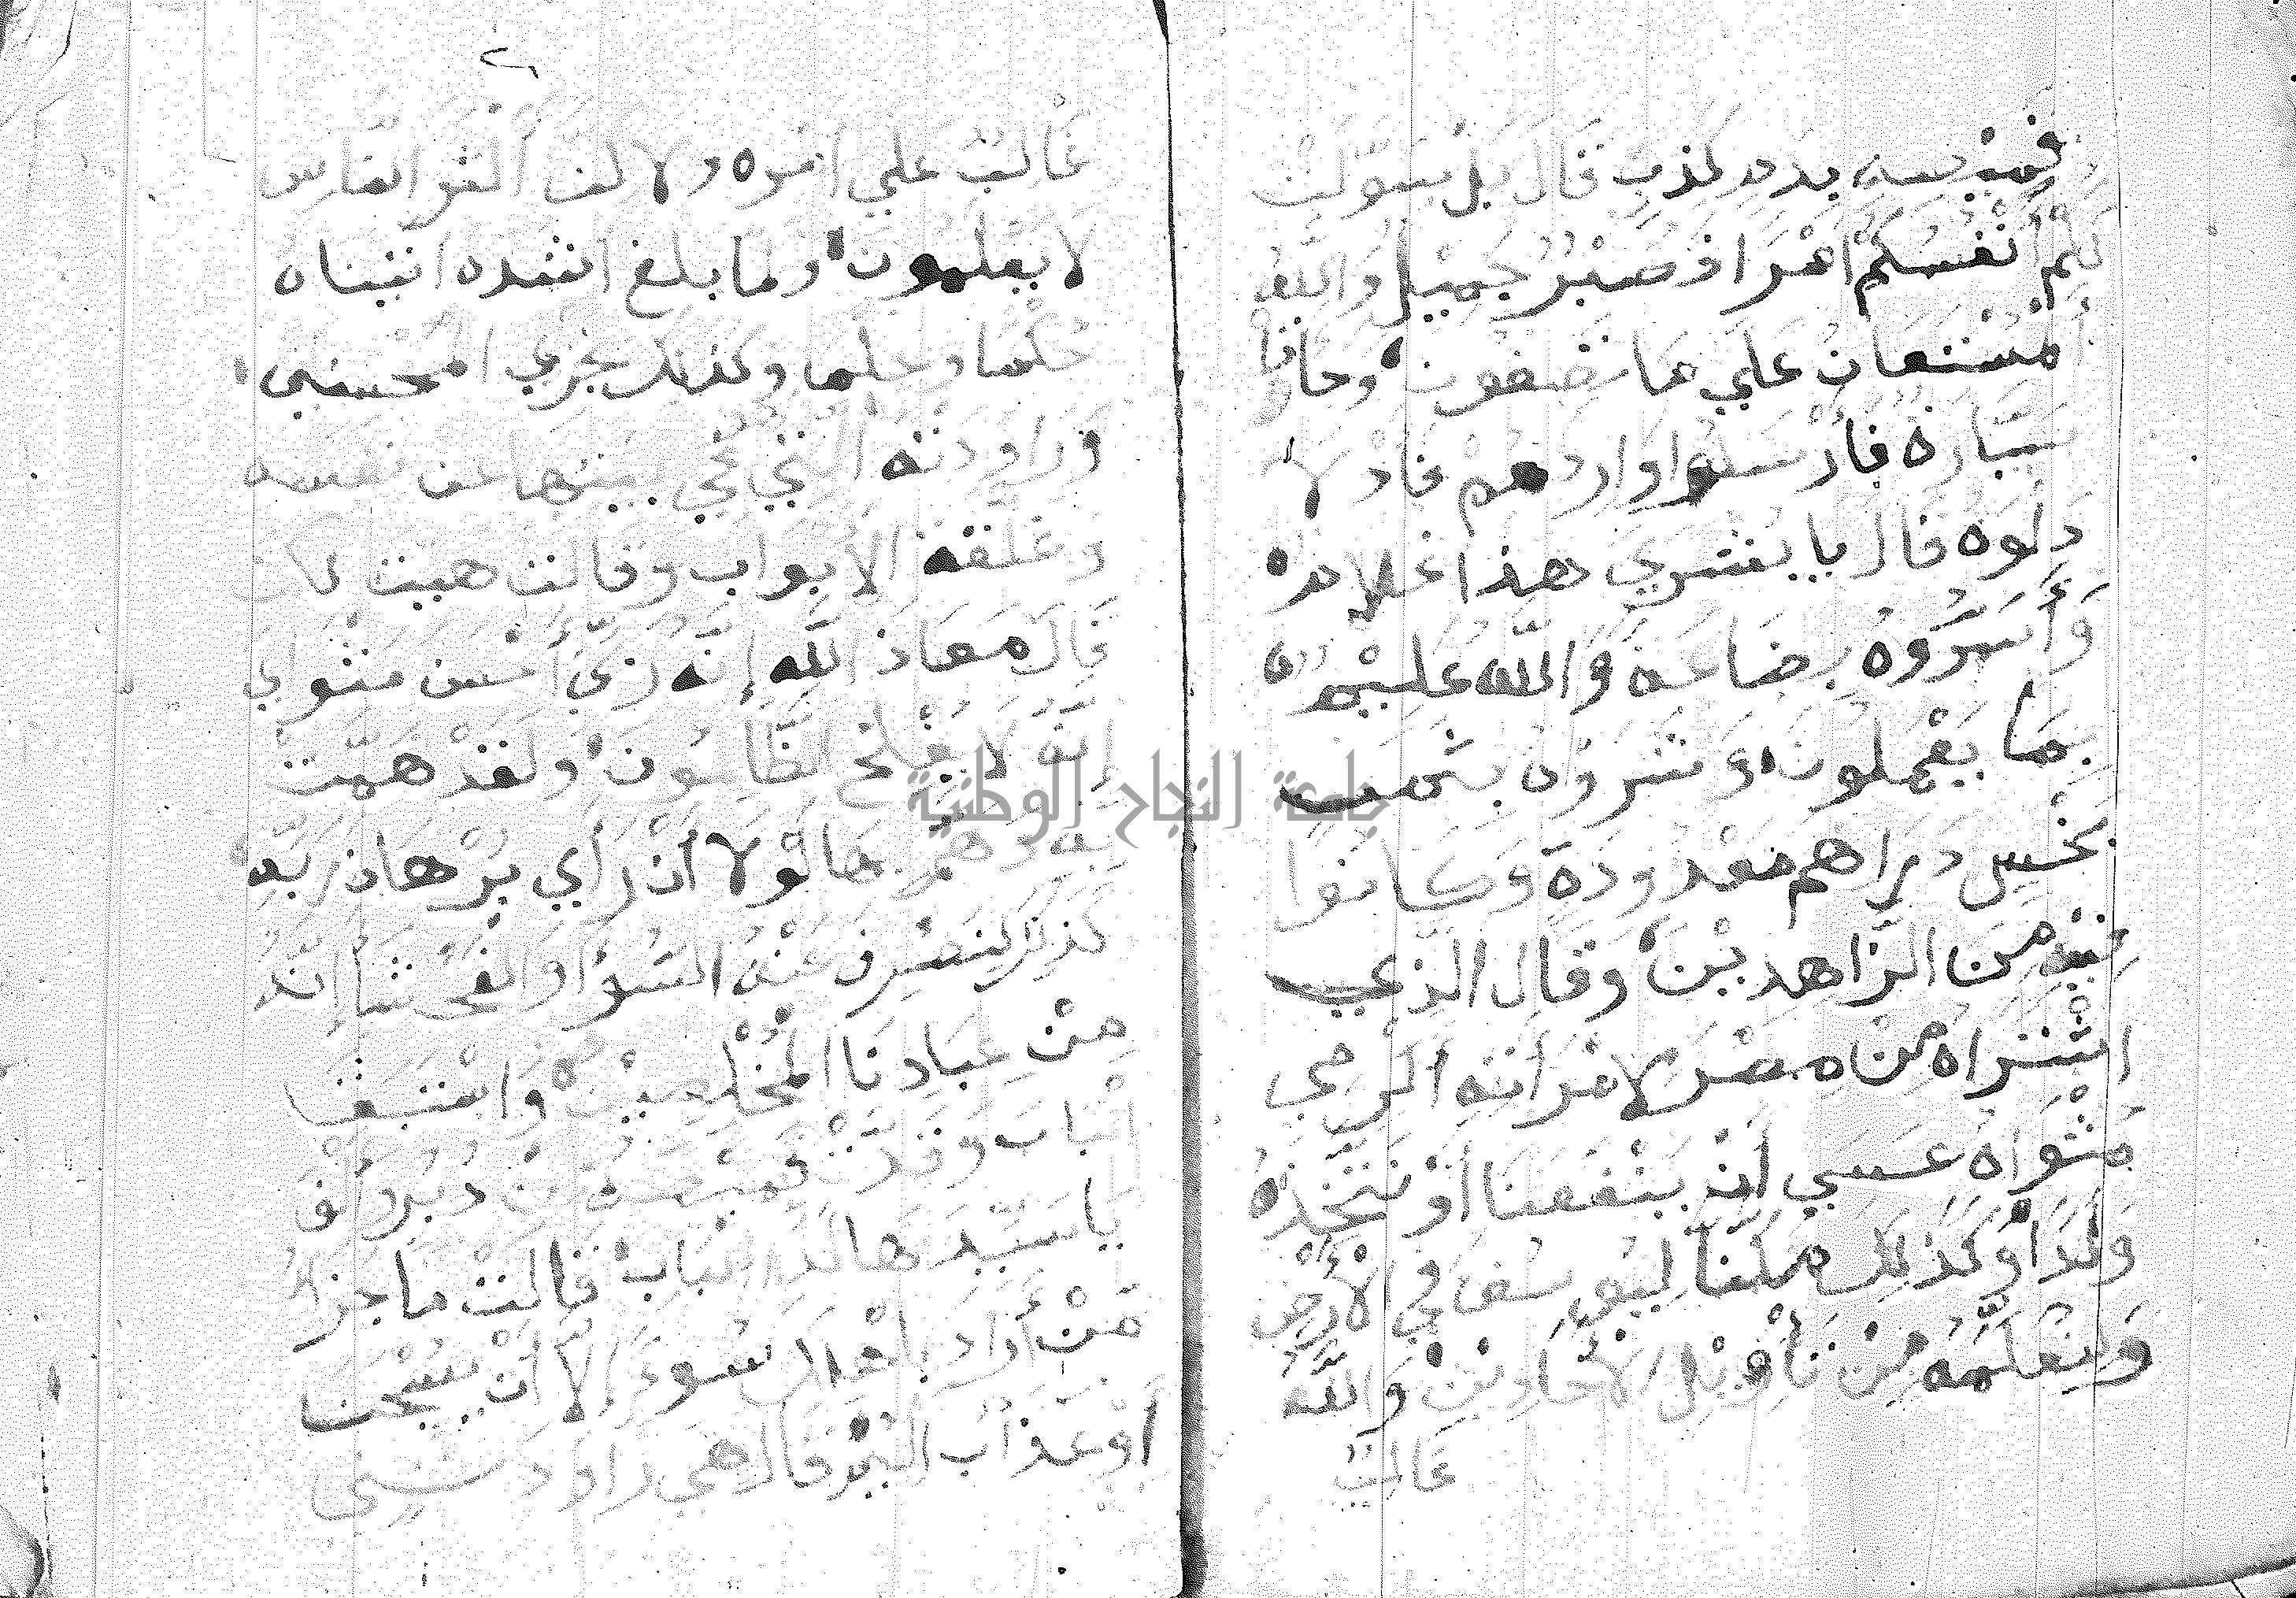 قميصه بدم كذب قال بل سوّلت
لكم أنفسكم أمرا فصبر جميل والله
المستعان علي ما تصفون وجات
سيارة فأرسلوا واردهم فادلا
دلوه قال يا بشري هذا غلام
وأسرّوه بضاعة والله عليم
بما يعملون وشروه بثمن
بخس دراهم معدودة وكانوا
فيه من الزاهدين وقال الذي
اشتراه من مصر لامرأته اكرمي
مثواه عسي أن ينفعنا أو نتخذه
ولدا وكذلك مكنّا ليوسف في الأرض
ولنعلّمه من تأويل الأحاديث والله
غالب
٢
غالب علي امره ولاكن أكثر النّاس
لا يعلمون ولما بلغ اشده اتيناه
حكما وعلما وكذلك نجزي المحسنين
وراودته التي في بيتها عن نفسه
وغلّقة الأبواب وقالت هيت لك
قال معاذ الله إنّه ربّي أحسن مثواي
إنّه لا يفلح الظالمون ولقد همّت
به وهم بها لولا أن رأي برهان ربّه
كذلك لنصرف عنه السّوء والفحشا إنّه
من عبادنا المخلصين واستبقا
الباب وقدّت قميصه من دبر وألف
يا سيّدها لدا الباب قالت ما جزاء
من أراد باهلك سوء إلا أن يسجن
أو عذاب اليم قال هي راودتني
جامعة النجاح الوطنية